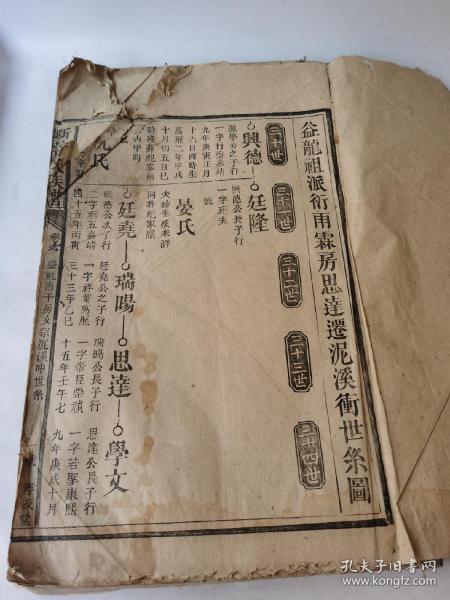 益龍祖派衍雨霖房思達遷泥溪衝世系圖
三十世
三十一世
三十二世
三十三世
三十四世
興德
廷隆
源學公之子行
一字行崇嘉靖
九年庚寅正月
十六日酉時生
萬歷二年甲戌
十月初五日巳
時歿葬紀家嶺
興德公長子行
一字
晏氏
夫婦生歿未詳
同葬紀家嶺
氏
廷堯
瑞暘
思達
學文
興德公次子行
二字
嘉靖
四十五年丙寅
廷堯公之子行
一字祥萬歷
三十三年乙巳
瑞暘公長子行
一字帝臣崇禎
十五年壬午七
思達公長子行
一字若聖康熙
九年庚戌十月
益龍
房
泥溪冲世系
孔夫子旧书网
http://www.kongfz.com